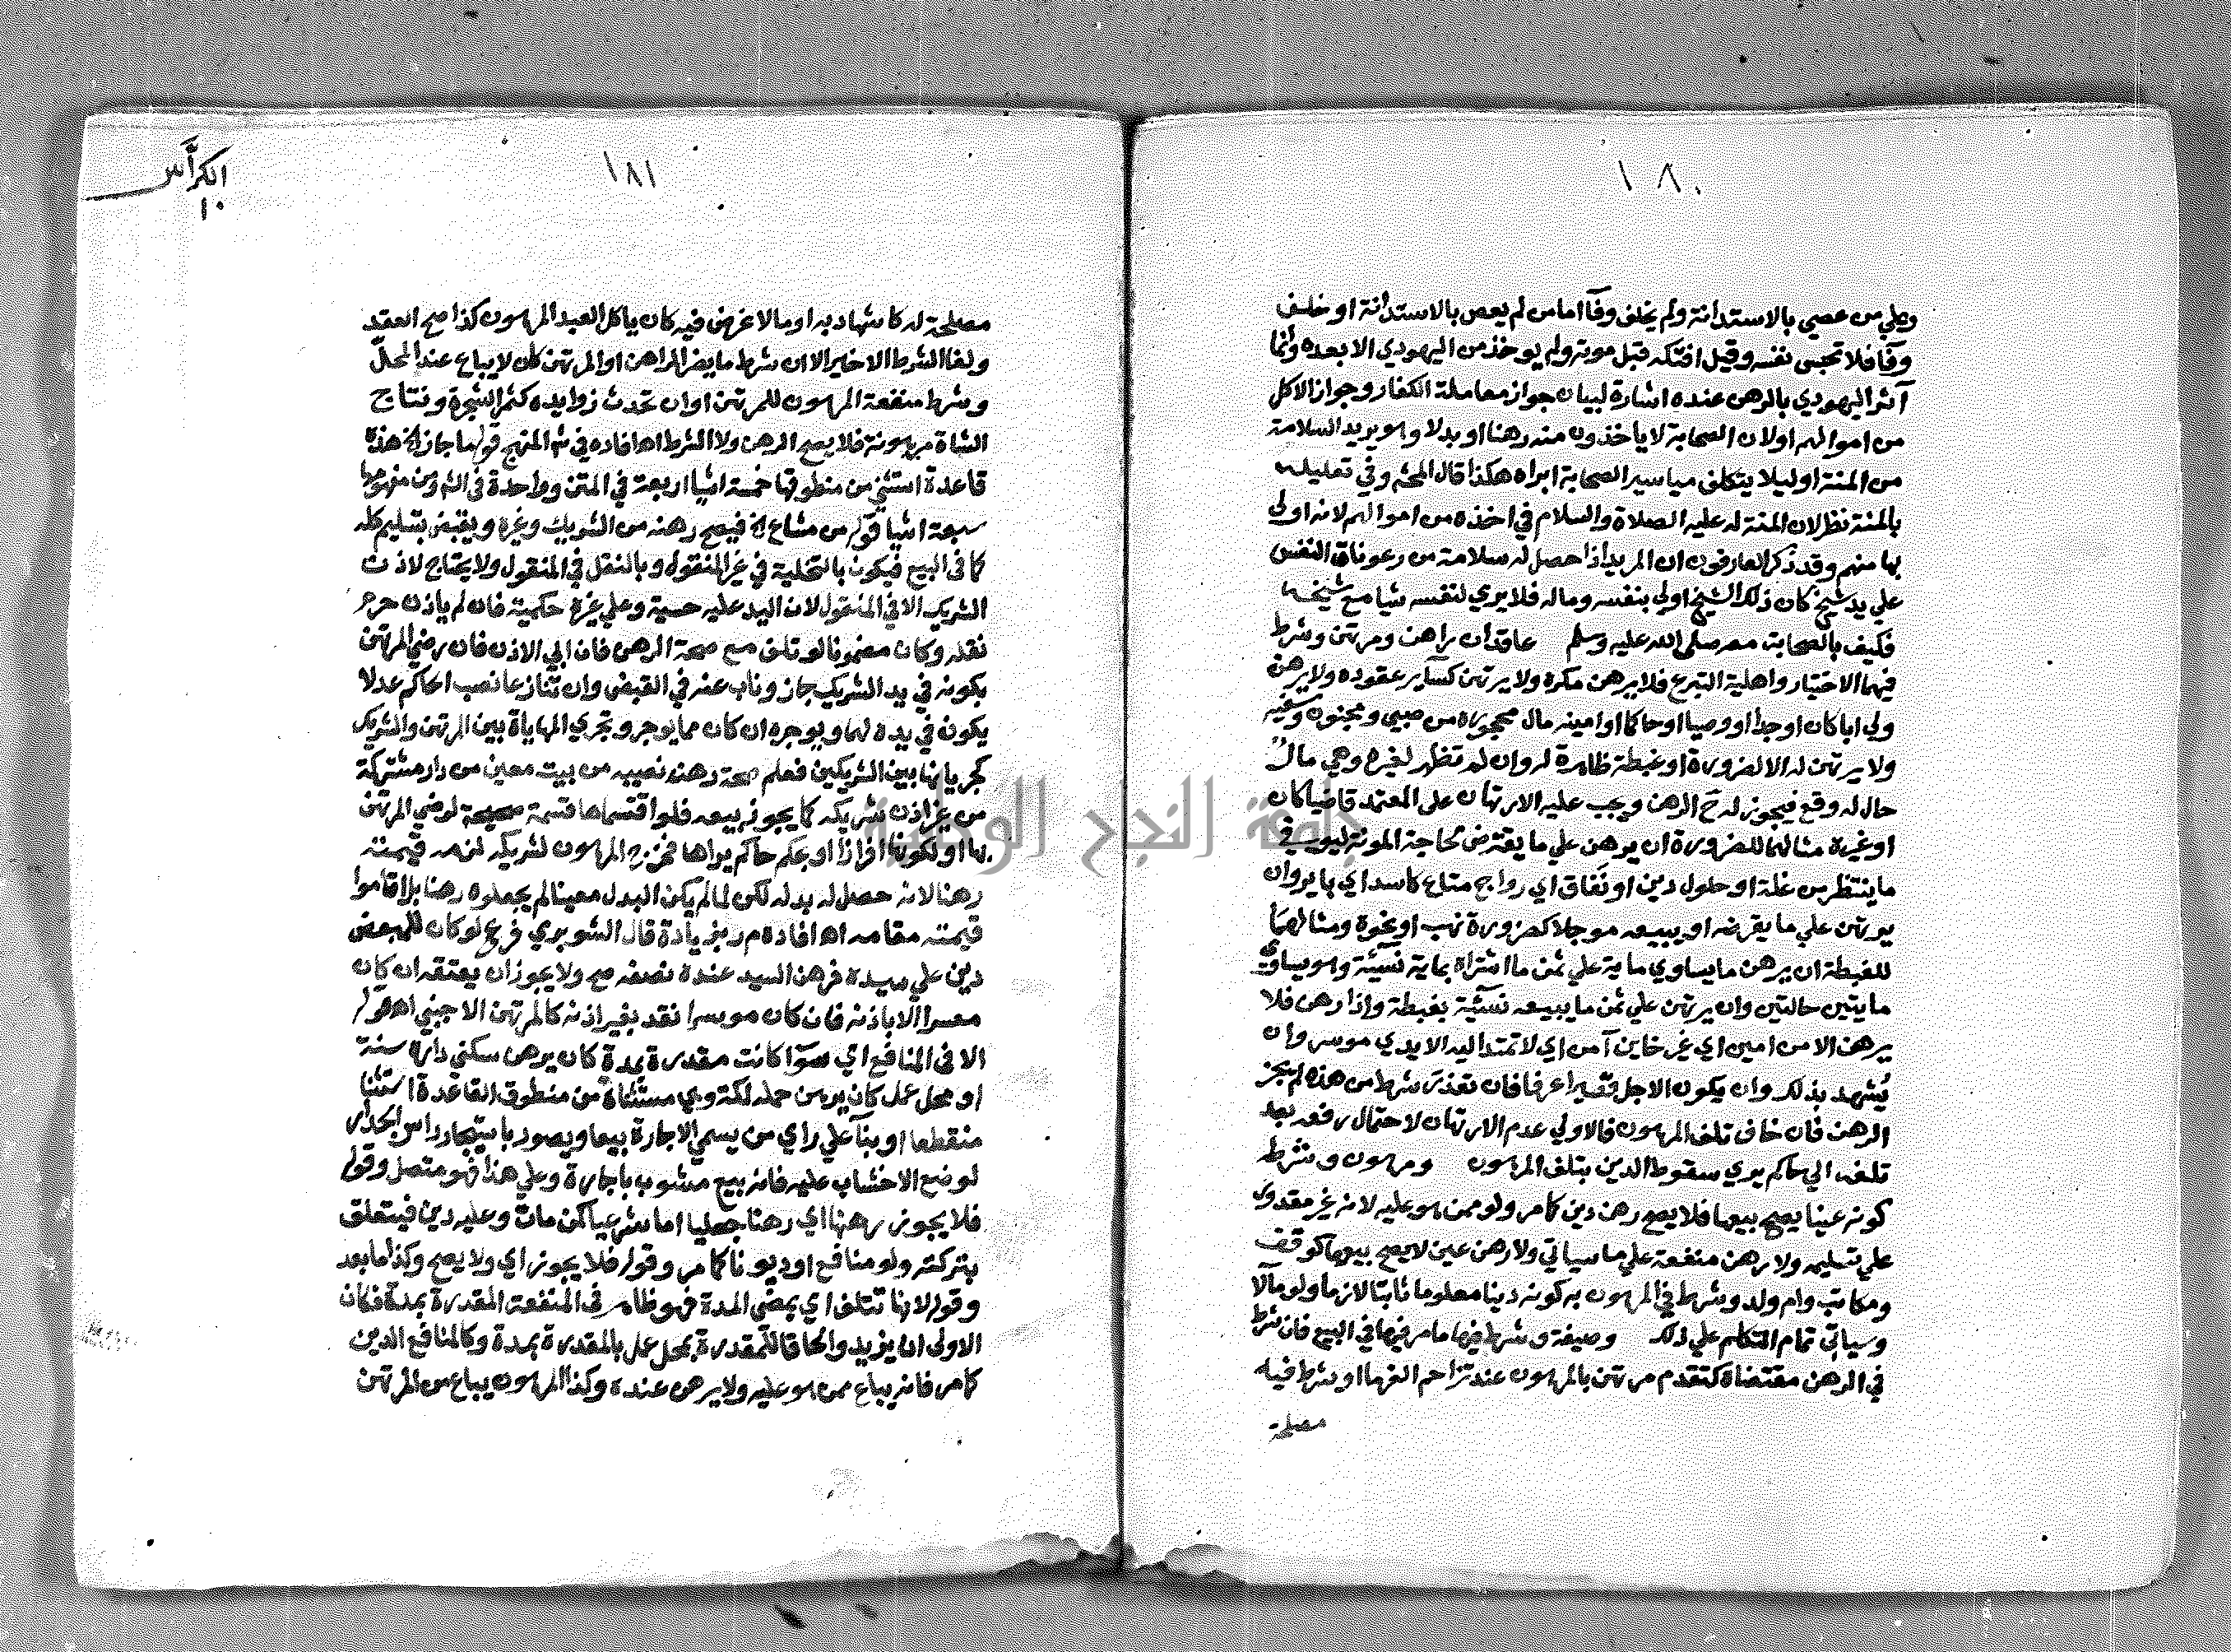 ١٨٠
وعلي من عصي بالاستدانة ولم يخلف وفآ اما من لم يعص بالاستدانة او خلف
وفآ فلا تحبس نفسه وقيل افتكه قبل موته ولم يوخذ من اليهودي الا بعده وانما
آثر اليهودي بالرهن عنده اشارة لبيان جواز معاملة الكفار وجواز الاكل
من اموالهم او لان الصحابة لا ياخذون منه رهنا او بدلا وهو يريد السلامة
من المنة او ليلا يتكلف مياسير الصحابة ابراه هكذا قال المحشي وفي تعليله
بالمنة نظر لان المنة له عليه الصلاة والسلام في اخذه من اموالهم لانه اولي
بها منهم وقد ذكر العارفون ان المريد اذا حصل له سلامة من رعونات النفس
علي يد شيخ كان ذلك الشيخ اولي بنفسه وماله فلا يري لنفسه شيا مع شيخه
فكيف بالصحابة معه صلى الله عليه وسلم عاقدان راهن ومرتهن وشرط
فيهما الاختيار واهلية التبرع فلا يرهن مكره ولا يرتهن كسآير عقوده ولا يرهن
ولي ابا كان او جدا او وصيا او حاكما او امينه مال محجوره من صبي ومجنون وسفيه
ولا يرتهن له الا لضرورة او غبطة ظاهرة له وان لم تظهر لغيره وهي مال
حال له وقع فيجوز له ح الرهن ويجب عليه الارتهان على المعتمد قاضيا كان
او غيره مثالهما للضرورة ان يرهن علي ما يقترض لحاجة المونة ليوفي
ما ينتظر من غلة او حلول دين او نفاق اي رواج متاع كاسد اي بايروان
يرتهن علي ما يقرضه او يبيعه موجلا كضرورة نهب او نحوه ومثالهما
للغبطة ان يرهن ما يساوي ماية علي ثمن ما اشتراه بماية نسيئة وهو يساوي
مايتين حالتين وان يرتهن علي ثمن ما يبيعه نسيئة بغبطة واذا رهن فلا
يرهن الا من امين اي غير خاين آمن اي لا تمتد اليه الايدي موسر وان
يُشهد بذلك وان يكون الاجل قصيرا عرفا فان تعذر شرط من هذه لم يجز
الرهن فان خاف تلف المرهون فالاولي عدم الارتهان لاحتمال رفعه بعد
تلفه الي حاكم يري سقوط الدين بتلف المرهون ومرهون وشرطه
كونه عينا يصح بيعها فلا يصح رهن دين كما مر ولو ممن هو عليه لانه غير مقدور
علي تسليمه ولا رهن منفعة علي ما سياتي ولا رهن عين لا يصح بيعها كوقف
ومكاتب وام ولد وشرط في المرهون به كونه دينا معلوما ثابتا لازما ولو مآلا
وسياتي تمام التكلم علي ذلك وصيغة وشرط فيها ما مر فيها في البيع فان شرط
في الرهن مقتضاه كتقدم مرتهن بالمرهون عند تزاحم الغرما او شرط فيه
مصلحة
١٨١
الكراس
١٠
مصلحة له كاشهاد به او ما لا غرض فيه كان ياكل العبد المرهون كذا صح العقد
ولغا الشرط الاخير الا ان شرط ما يضر الراهن او المرتهن كان لا يباع عند المحلّ
وشرط منفعة المرهون للمرتهن او ان تحدث زوايده كثمر الشجرة ونتاج
الشاة مرهونة فلا يصح الرهن ولا الشرط اه افاده في شر المنهج قوله ما جاز الخ هذه
قاعدة استثني من منطوقها خمسة اشيا اربعة في المتن وواحدة في الش ومن مفهومها
سبعة اشيا قوله من مشاع الخ فيصح رهنه من الشريك وغيره ويقبض بتسليم كله
كما في البيع فيكون بالتخلية في غير المنقول وبالنقل في المنقول ولا يحتاج لاذن
الشريك الا في المنقول لان اليد عليه حسية وعلي غيره حكمية فان لم ياذن حرم
نقله وكان مضمونا لو تلف مع صحة الرهن فان ابي الاذن فان رضي المرتهن
بكونه في يد الشريك جاز وناب عنه في القبض وان تنازعا نصب الحاكم عدلا
يكون في يده لهما ويوجره ان كان مما يوجر وتجري المهاياة بين المرتهن والشريك
كجريانها بين الشريكين فعلم صحة رهنه نصيبه من بيت معين من دار مشتركة
من غير اذن شريكه كما يجوز بيعه فلو اقتسماها قسمة صحيحة لرضي المرتهن
بها او لكونها افرازا او بحكم حاكم يراها فخرج المرهون لشريكه لزمه قيمته
رهنا لانه حصل له بدله لكن لما لم يكن البدل معينا لم يجعلوه رهنا بل اقاموا
قيمته مقامه اه افاده م ر بزيادة قال الشوبري فرع لو كان للمبعض
دين علي سيده فرهن السيد عنده نصفه صح ولا يجوز ان يعتقه ان كان
معسرا الا باذنه فان كان موسرا نفذ بغير اذنه كالمرتهن الاجنبي اه قوله
الا في المنافع اي سوآ كانت مقدرة بمدة كان يرهن سكني داره سنة
او محل عمل كان يرهن حمله لمكة وهي مستثناة من منطوق القاعدة استثنا
منقطعا او بنآ علي راي من يسمي الاجارة بيعا ويصور باستيجار راس الجدار
لوضع الاخشاب عليه فانه بيع مشوب باجارة وعلي هذا فهو متصل وقوله
فلا يجوز رهنها اي رهنا جعليا اما شرعيا كمن مات وعليه دين فيتعلق
بتركته ولو منافع او ديونا كما مر وقوله فلا يجوز اي ولا يصح وكذا ما بعد
وقوله لانها تتلف اي بمضي المدة فهو ظاهر في المنفعة المقدرة بمدة فكان
الاولى ان يزيد والحاقا للمقدرة بمحل عمل بالمقدرة بمدة وكالمنافع الدين
كما مر فانه يباع ممن هو عليه ولا يرهن عنده وكذا المرهون يباع من المرتهن